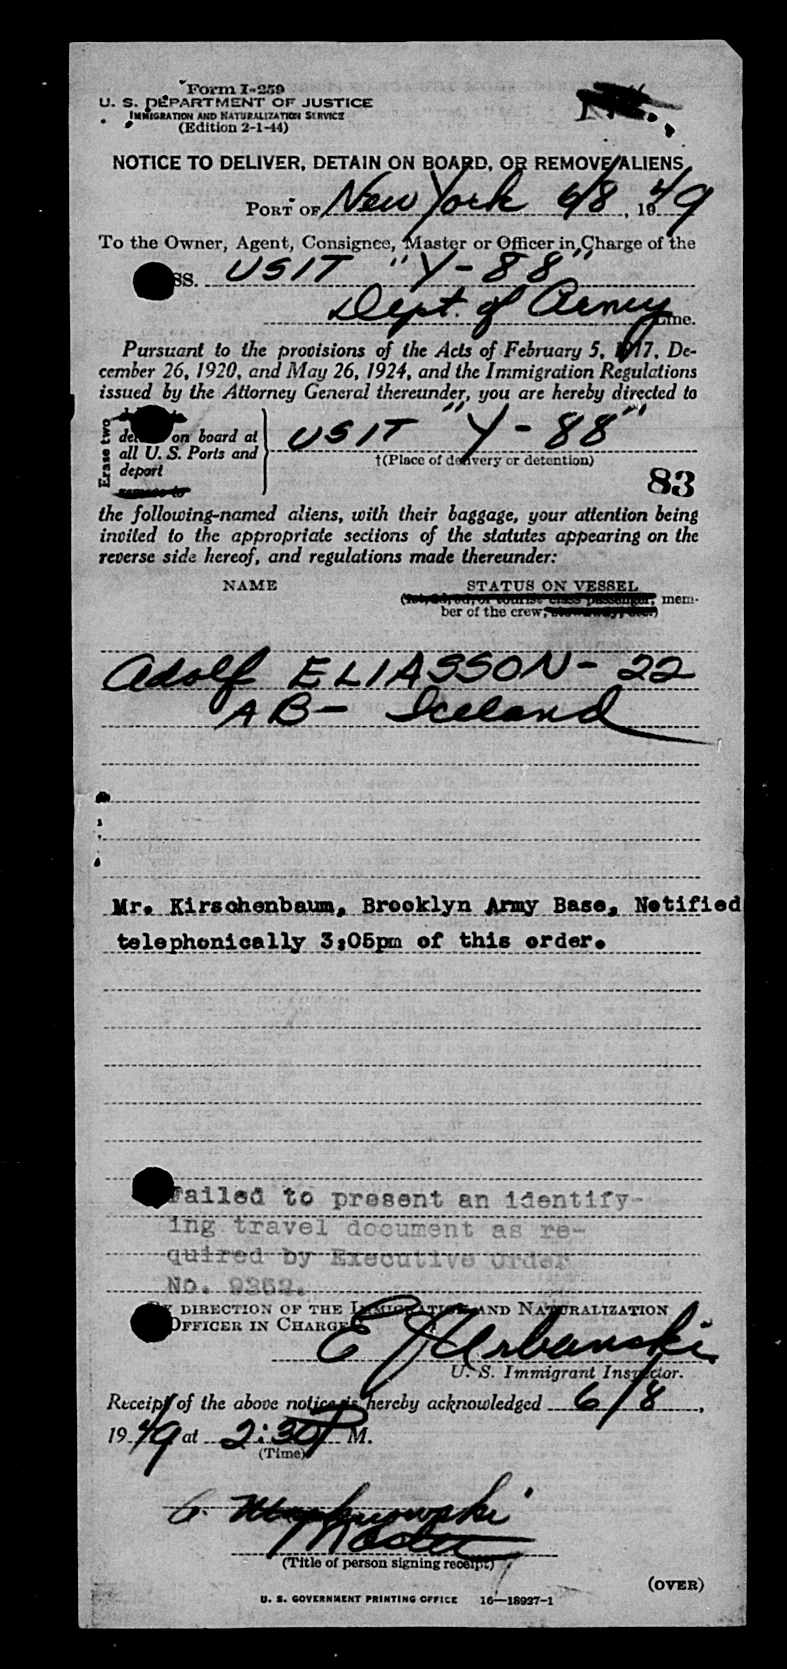 Form I-259
U. S. DEPARTMENT OF JUSTICE
IMMIGRATION AND NATURALIZATION SERVICE
(Edition 2-1-44)
NOTICE TO DELIVER, DETAIN ON BOARD, OR REMOVE ALIENS
PORT OF New York 6/8, 1949
To the Owner, Agent, Consignee, Master or Officer in Charge of the
SS. USIT "Y-88"
Dept. of Army Line.
Pursuant to the provisions of the Acts of February 5, 1917, De-
cember 26, 1920, and May 26, 1924, and the Immigration Regulations
issued by the Attorney General thereunder, you are hereby directed to
Erase two
on board at
all U. S. Ports and
deport
USIT "Y-88"
†(Place of delivery or detention)
83
the following-named aliens, with their baggage, your attention being
invited to the appropriate sections of the statutes appearing on the
reverse side hereof, and regulations made thereunder:
NAME STATUS ON VESSEL
mem-
ber of the crew,
Adolf ELIASSON - 22
AB - Iceland
Mr. Kirschenbaum, Brooklyn Army Base, Notified
telephonically 3;05pm of this order.
Failed to present an identify-
ing travel document as re-
quired by Executive Order
No. 9352.
BY DIRECTION OF THE IMMIGRATION AND NATURALIZATION
OFFICER IN CHARGE
E J Urbanski
U. S. Immigrant Inspector.
Receipt of the above notice is hereby acknowledged 6/8,
1949 at 2:30 P M.
(Time)
Master
(Title of person signing receipt)
(OVER)
U. S. GOVERNMENT PRINTING OFFICE 16—18927-1